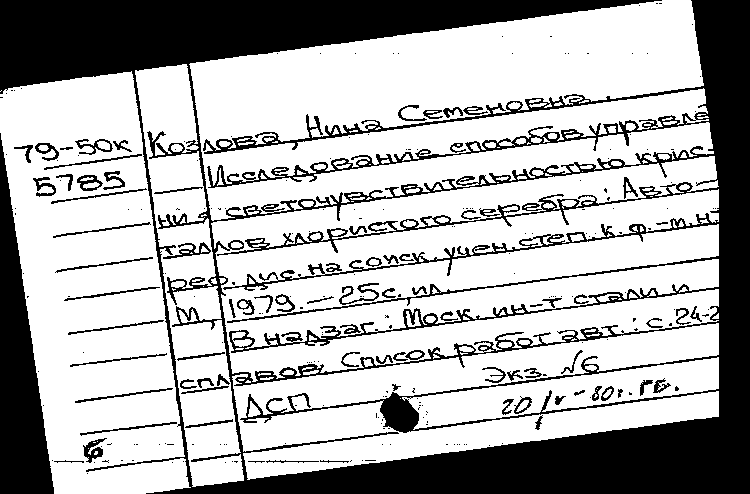 79-50к Козлова, Нина Семеновна.
5785 Исследование способов управле
ния светочувствительностью крис-
таллов хлористого серебра: Авто-
реф. дис. на соиск. учен. степ. к. ф.-м.н.
М., 1979. - 25с., ил.
В надзаг.: Моск. ин-т стали и
сплавов. Список работ авт.: с.24-2
Экз. №6
ДСП
20/V-80г. ГБ.
б